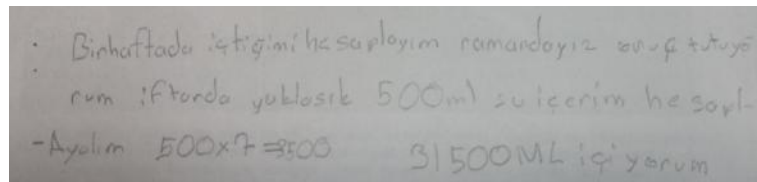 : Birhaftada içtiğimi hesaplayım ramandayız oruç tutuyo
rum iftarda yuklasık 500ml su içerim hesapl-
-Ayalım 500x7=3500 31500ML içiyorum